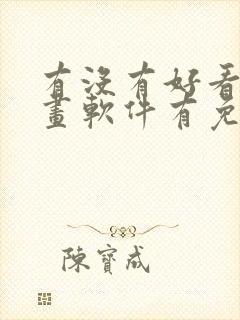 有沒有好看
畫軟件有免
陳寶成